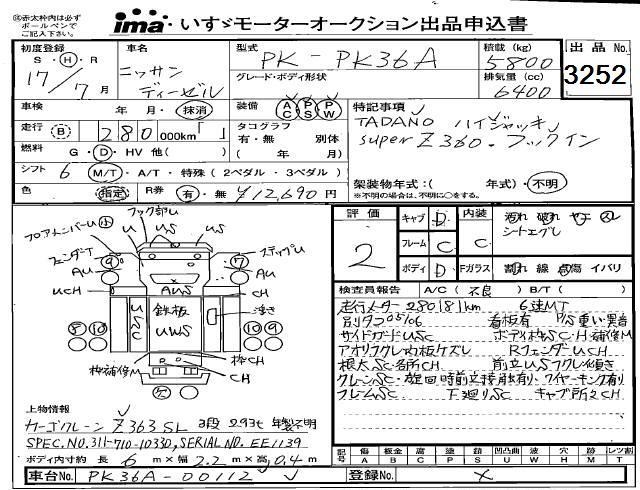 ※赤太枠内は必ず
ボールペンで
ご記入下さい。
ima いすゞモーターオークション出品申込書
初度登録 S・H・R 17/7月
車名 ニッサン ディーゼル
型式 PK-PK36A
グレード・ボディ形状
積載(kg) 5800
排気量(cc) 6400
出品No. 3252
車検 年・月・抹消
装備 AC PS PW
特記事項
TADANO ハイジャッキ
super Z360. フックイン
走行 B 280 000km「 」
タコグラフ 有・無 別体 ( 年 月)
燃料 G・D・HV 他( )
シフト 6 M/T・A/T・特殊(2ペダル・3ペダル)
架装物年式:( 年式)・不明
※年式が不明な場合は、不明に○をする。
色 指定 R券 有・無 ¥12,690円
評価 2
キャブ D
フレーム C
ボディ D
内装 C
汚れ 破れ ヤニ スレ
シートエグレ
Fガラス 割れ 線 点傷 イバリ
検査員報告 A/C(不良) B/T( )
走行メーター 280181km 6速MT
別タコ05/06 看板有 P/S重い異音
サイドガードUSC ボデー枠SC・H・補修M
アオリフクレ・灯板ケズレ RフェンダーUCH
根太SC・名所CH 前立USフクレ傾き
クレーンSC・旋回時前立接触有り ワイヤーキンク有り
フレームSC 下廻りSC キャブ所々CH
フック部U
フロアトンネルU 小
フェンダーT
ステップU
U US US
9 7
AU AU
AWS
UCH CH
USC
鉄板
UWS
凄き
8 10 10 9
枠CH
枠補修M CH
欠
上物情報
カーゴクレーン Z363SL 3段 2.93t 年製不明
SPEC.NO.311-710-10330, SERIAL NO. EE1139
ボディ内寸約 長 6 m×幅 2.2 m×高 0.4 m
記号 傷 板金 カギ 腐食 塗 錆 凹凸曲 波 穴 跡 レツ割
A B C F P S U W H M T
車台No. PK36A-00112
登録No. ×